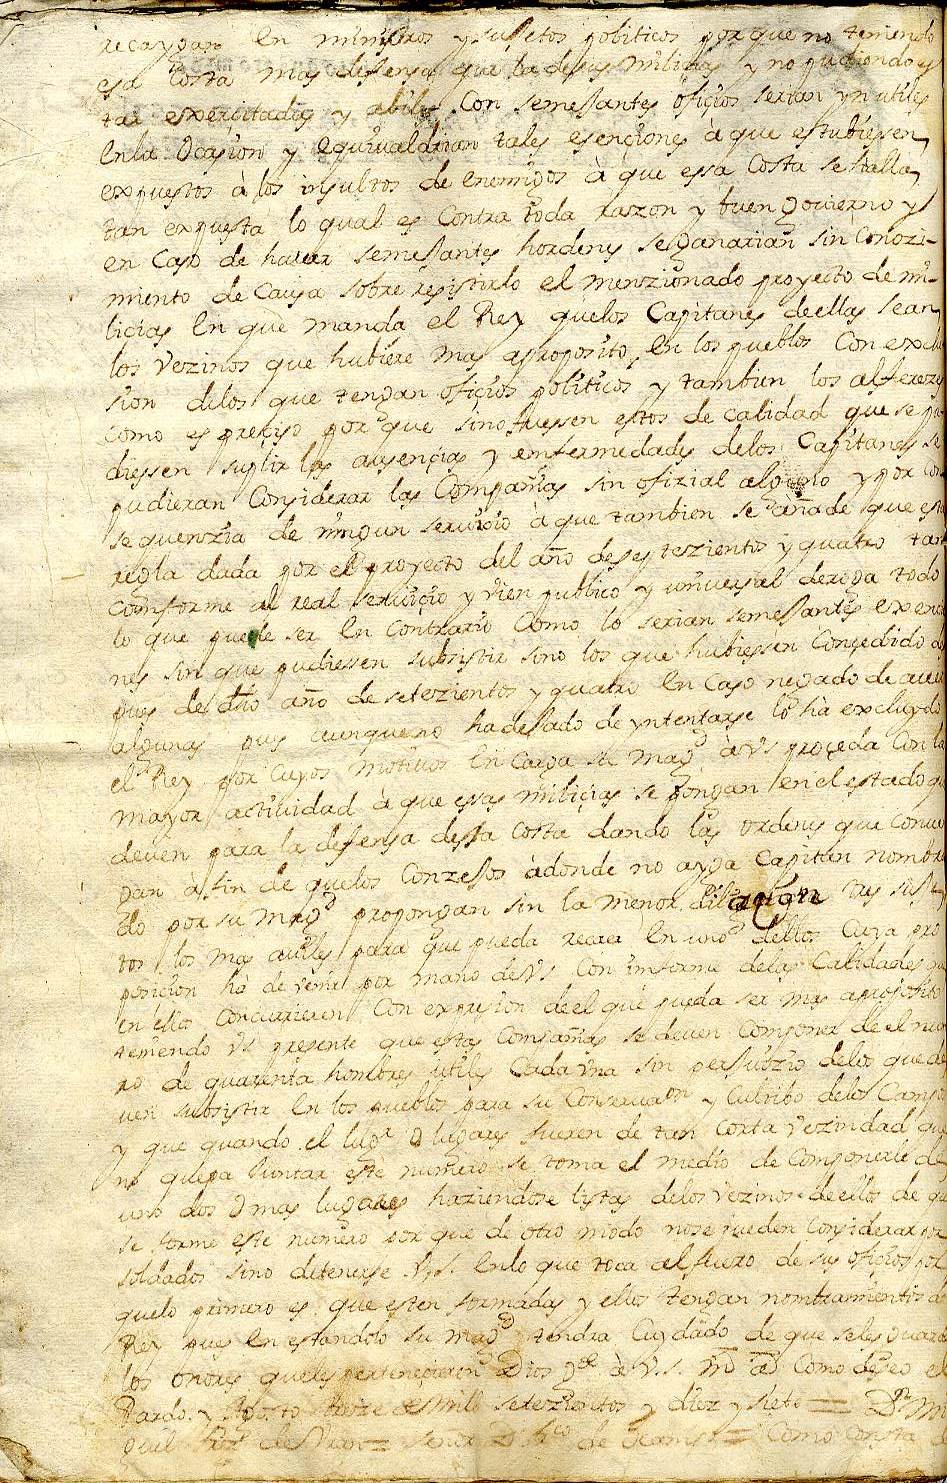 recaygan en ministros y sujetos politicos porque no teniendo
esa Costa mas defensa que la desus milicias y no pudiendo es
tar exercitadas y abiles Con semejantes oficios serian ynutiles
En la Ocasion y Equivaldrian tales esenciones à que estubiesen
expuestos à los insultos de Enemigos à que essa Costa se halla
tan expuesta lo qual es Contra toda razon y buen govierno y
en Caso de haver semejantes hordenes se ganarian sin Conozi-
miento de Causa sobre resistirlo el menzionado proyecto de mi-
licias En que manda el Rey quelos Capitanes de ellas sean
los Vezinos que hubiere mas aproposito En los pueblos Con exclu
sion delos que tengan oficios politicos y tambien los alferezes
como es preciso por que sino fuessen estos de calidad que se pu
diessen suplir las ausencias y enfermedades delos Capitanes se
pudieran Considerar las Compañias sin ofizial alguno y por con
sequenzia de ningun servicio à que tambien se añade que esta
regla dada por el Proyecto del año de setezientos y quatro tan
Comforme al real servicio y vien publico y universal deroga todo
lo que puede ser En contrario Como lo serian semejantes exencio
nes sin que pudiessen subsistir sino los que hubiessen Concedido des
pues de dho año de setezientos y quatro En Caso negado de aver
algunas pues aunque no ha dejado de yntentarse lo ha excluydo
el Rey por Cuyos motivos En Carga su Magd à VS proceda Con la
mayor actividad à que essas milicias se pongan en el estado q
deven para la defensa desta Costa dando las ordenes que Conven
gan à fin de quelos Conzejos àdonde no ayga Capitan nombra
do por su Magd propongan sin la menor dilazion tres suje
tos los mas aviles para que pueda recaer En uno dellos Cuya pro
posicion hà de venir por mano de VS Con informe delas Calidades que
en ellos Concurrieren Con expresion de el que pueda ser mas aproposito
teniendo VS presente que estas Compañias se deven Componer de el nume
ro de quarenta hombres utiles Cada una sin perjuizio delos que de
ven subsistir En los pueblos para su Conservaon y Cultibo delos Campos
y que quando el lugr o lugares fueren de tan Corta Vezindad que
no quepa Juntar este numero se toma el medio de Componerle de
uno dos o mas lugares haziendose listas delos Vezinos de ellos de que
se forme este numero por que de otro modo nose pueden Considerar por
soldados sino detenerse V.S. Enlo que toca al fuero de sus oficios por
quelo primero es que esten formadas y ellos tengan nombramientos del
Rey pues En estandolo su Magd tendra Cuydado de que seles guarden
los onores queles pertenecieren Dios gde à V.S. ms as Como deseo el
Pardo y Agosto treze de mill setezientos y diez y siete = Dn Mi
guel frz de Duran = Señor Dn de Ocampo = Como Consta